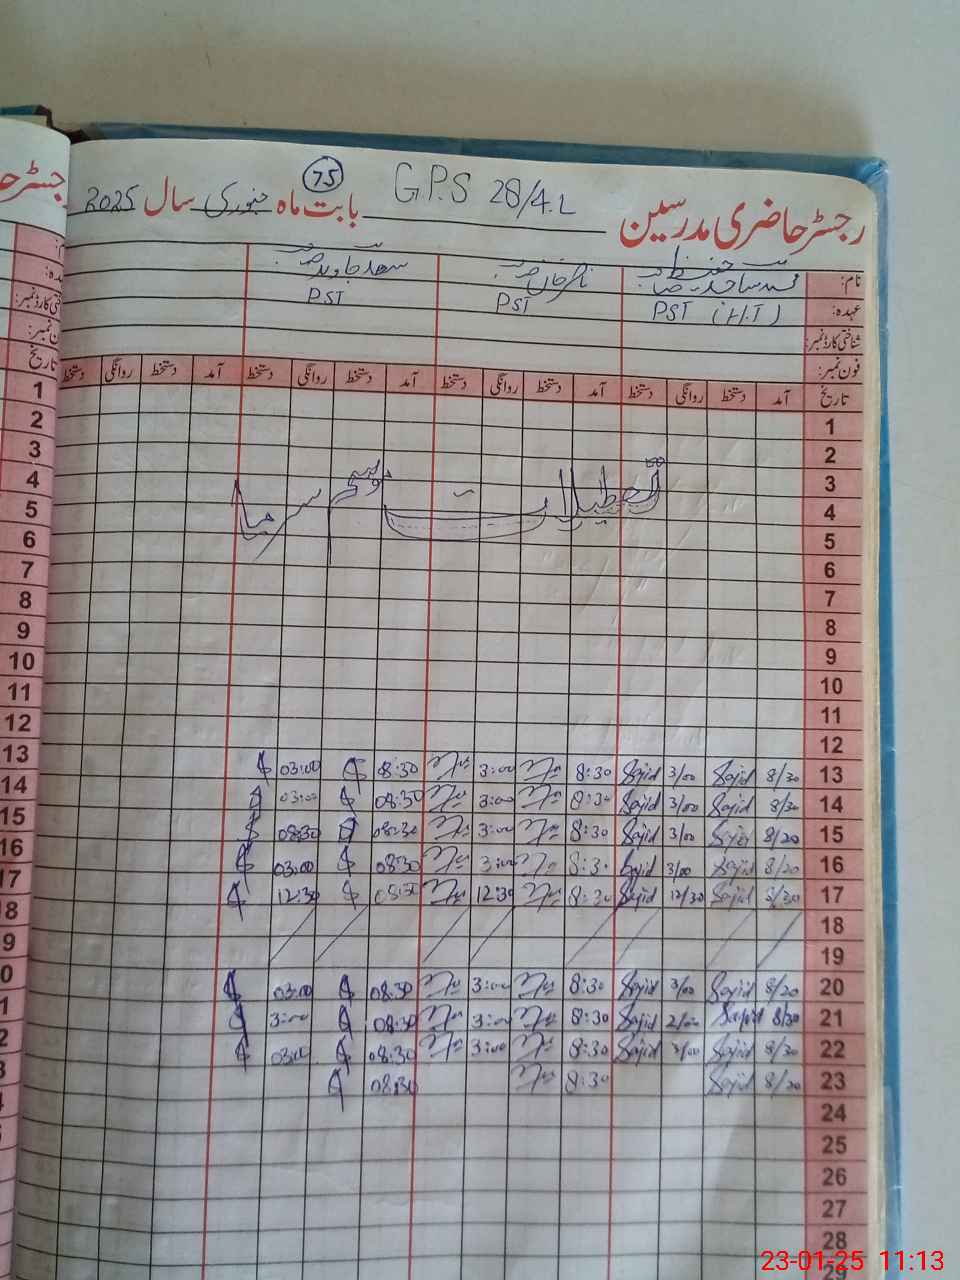 رجسٹر حاضری مدرسین G.P.S 28/4.L 75 بابت ماہ جنوری سال 2025
نام: محمد ساجد حفیظ صاحب ناصر خان صاحب سعد جاوید صاحب
عہدہ: PST (H.T) PST PST
شناختی کارڈ نمبر:
فون نمبر:
تاریخ آمد دستخط روانگی دستخط آمد دستخط روانگی دستخط آمد دستخط روانگی دستخط آمد دستخط روانگی دستخط
1
2
3
4
تعطیلات موسم سرما
5
6
7
8
9
10
11
12
13 8/30 Sajid 3/00 Sajid 8:30 3:00 08:30 03:00
14 8/30 Sajid 3/00 Sajid 8:30 3:00 08:30 03:00
15 8/20 Sajid 3/00 Sajid 8:30 3:00 08:30 08:30
16 8/20 Sajid 3/00 Sajid 8:30 3:00 08:30 03:00
17 8/30 Sajid 12/30 Sajid 8:30 12:30 08:30 12:30
18
19
20 8/20 Sajid 3/00 Sajid 8:30 3:00 08:30 03:00
21 8/30 Sajid 2/00 Sajid 8:30 3:00 08:30 3:00
22 8/30 Sajid 3/00 Sajid 8:30 3:00 08:30 03:00
23 8/20 Sajid 8:30 08:30
24
25
26
27
28
29
23-01-25 11:13